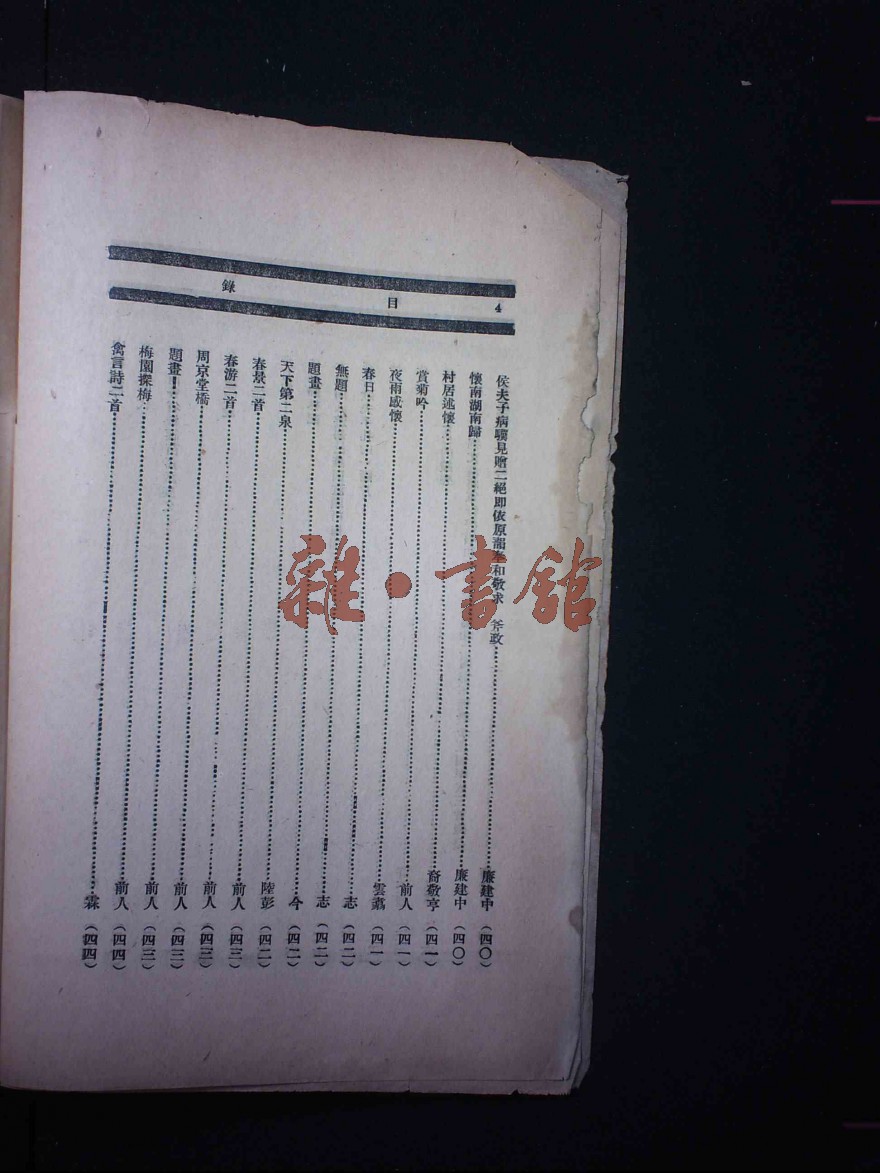 目錄 4
侯夫子病驟見贈二絕即依原韻奉和敬求 斧政……廉建中（四〇）
懷南湖南歸……廉建中（四〇）
村居述懷……裔敬亨（四一）
賞菊吟……前人（四一）
夜雨感懷……雲翥（四一）
春日……志（四二）
無題……志（四二）
題畫……今（四二）
天下第二泉……陸彭（四二）
春景二首……前人（四三）
春游二首……前人（四三）
周京堂橋……前人（四三）
題畫……前人（四三）
梅園探梅……前人（四四）
禽言詩二首……霖（四四）
雜·書館